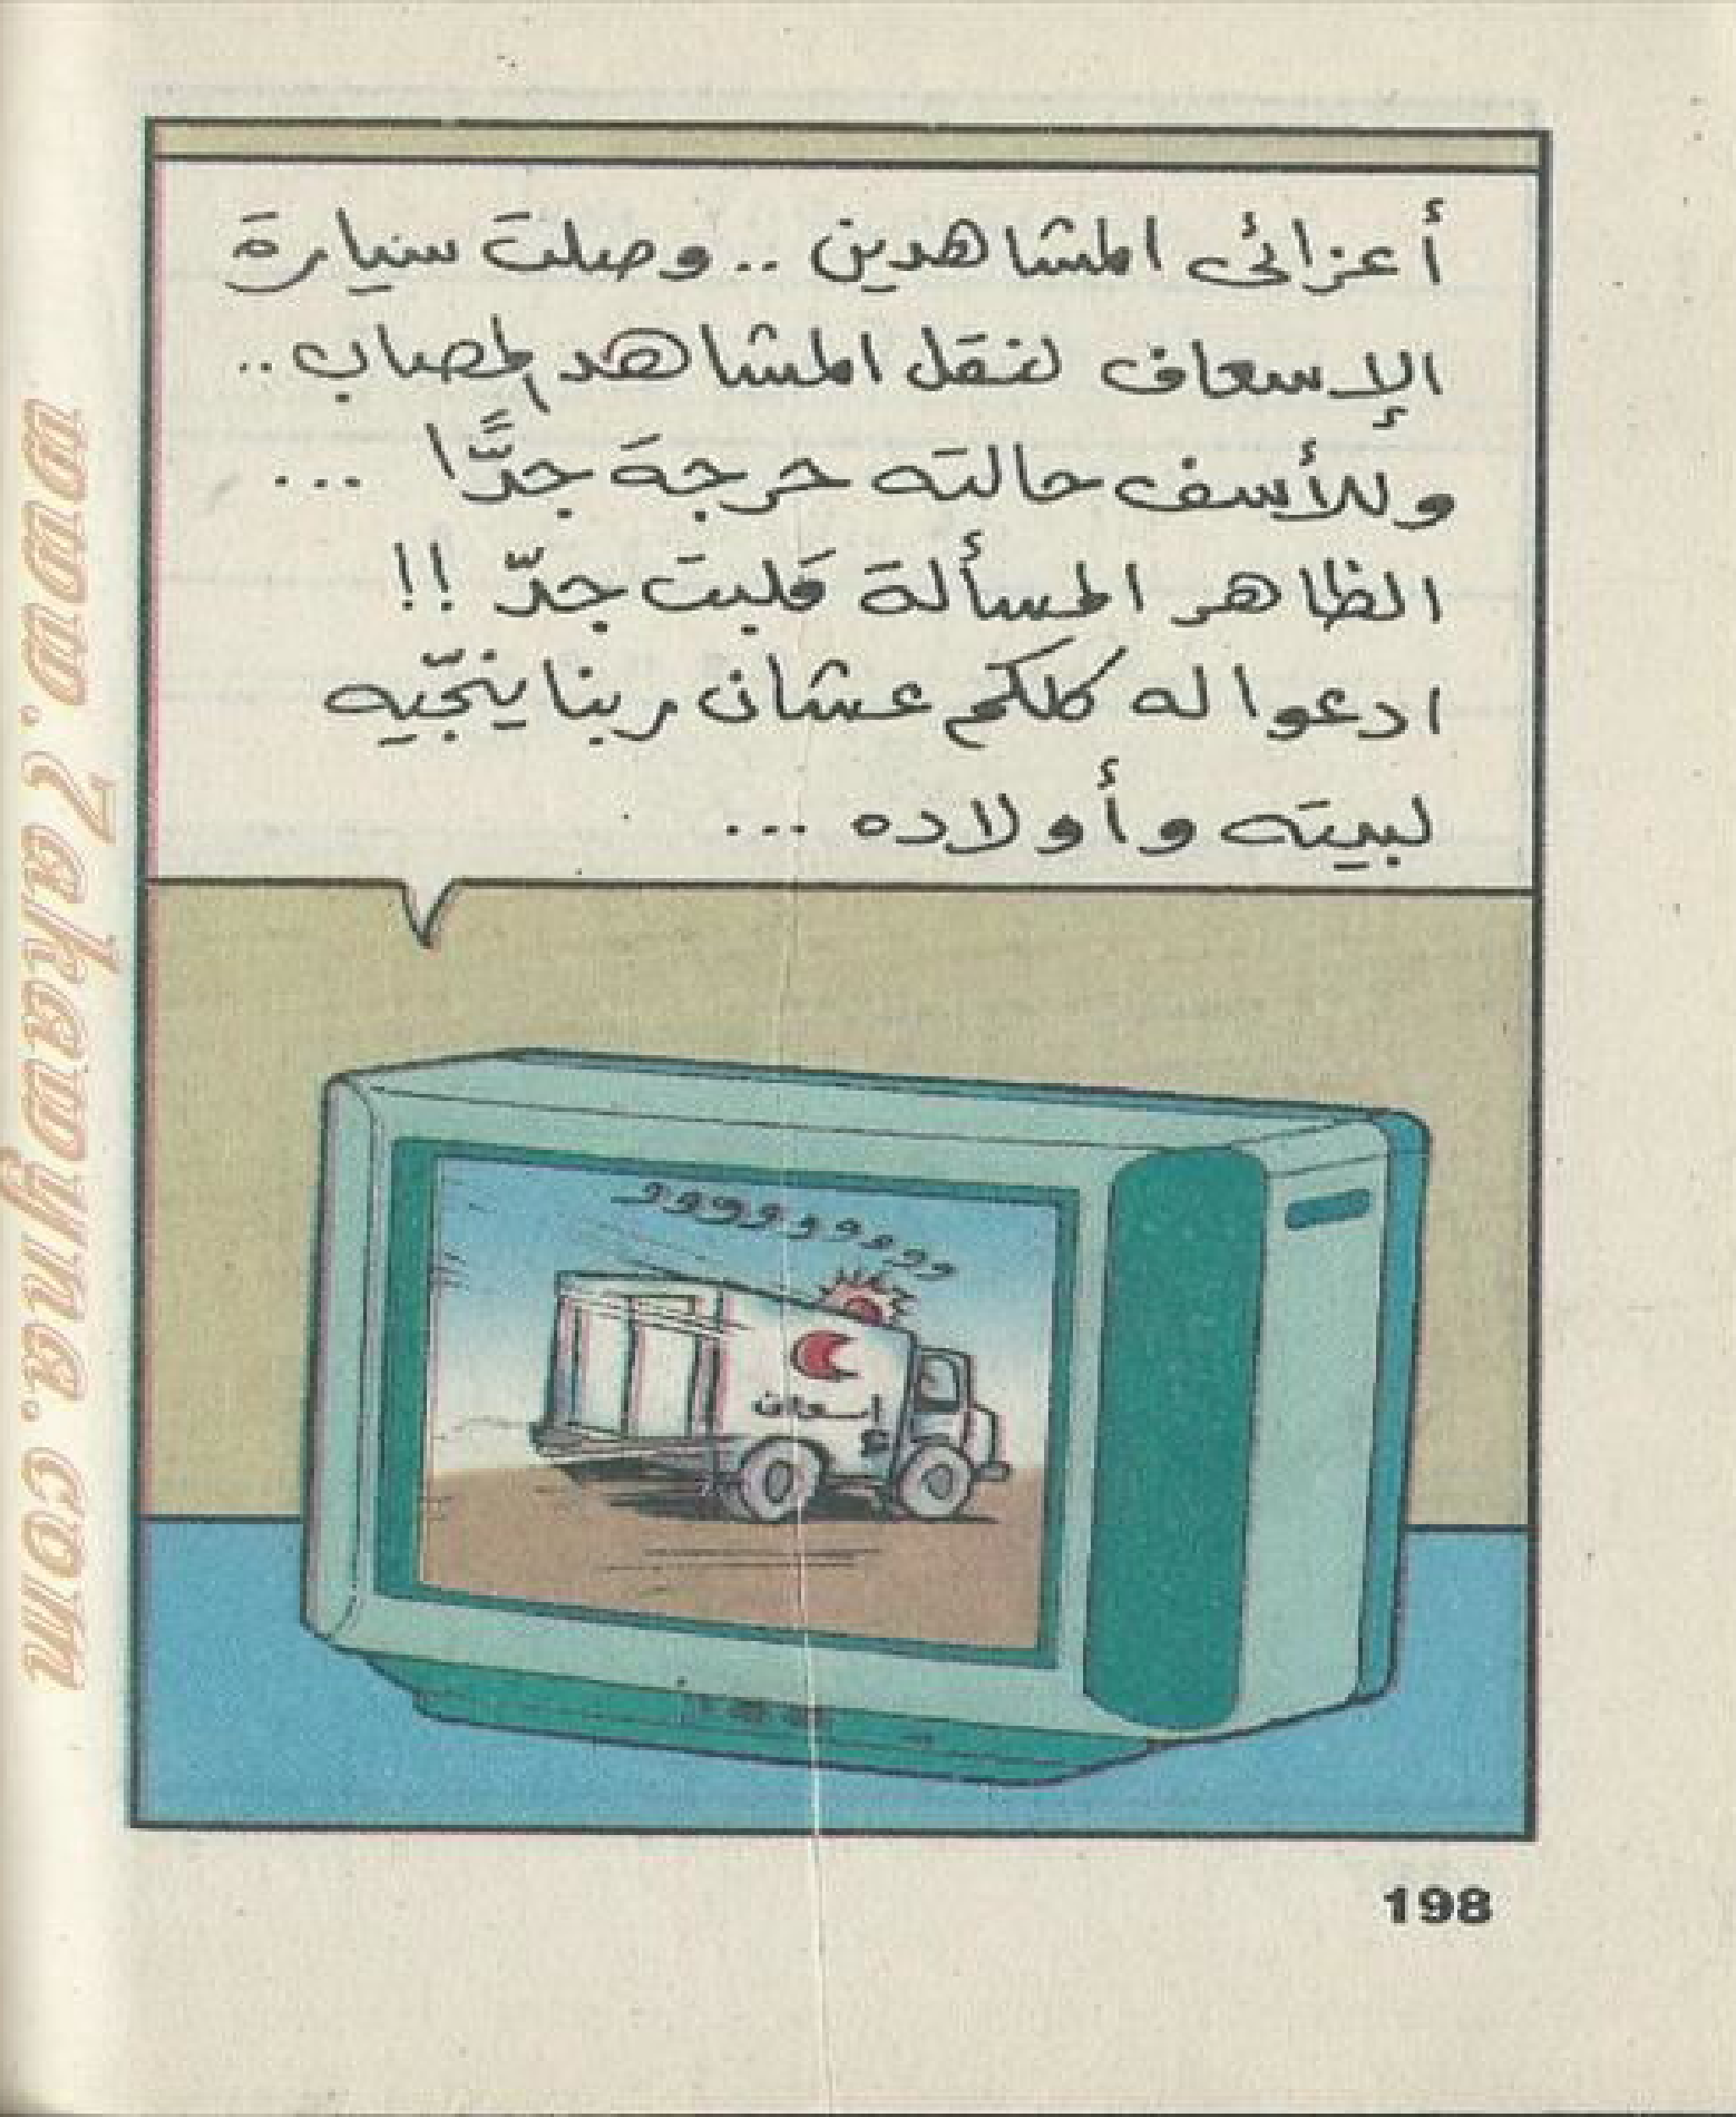 أعزائى المشاهدين .. وصلت سيارة
الإسعاف لنقل المشاهد المصاب ..
وللأسف حالته حرجة جدًّا ...
الظاهر المسألة قلبت جدّ !!
ادعوا له كلكم عشان ربنا ينجّيه
لبيته وأولاده ...
وووووووووو
إسعاف
198
www.7akawyna.com